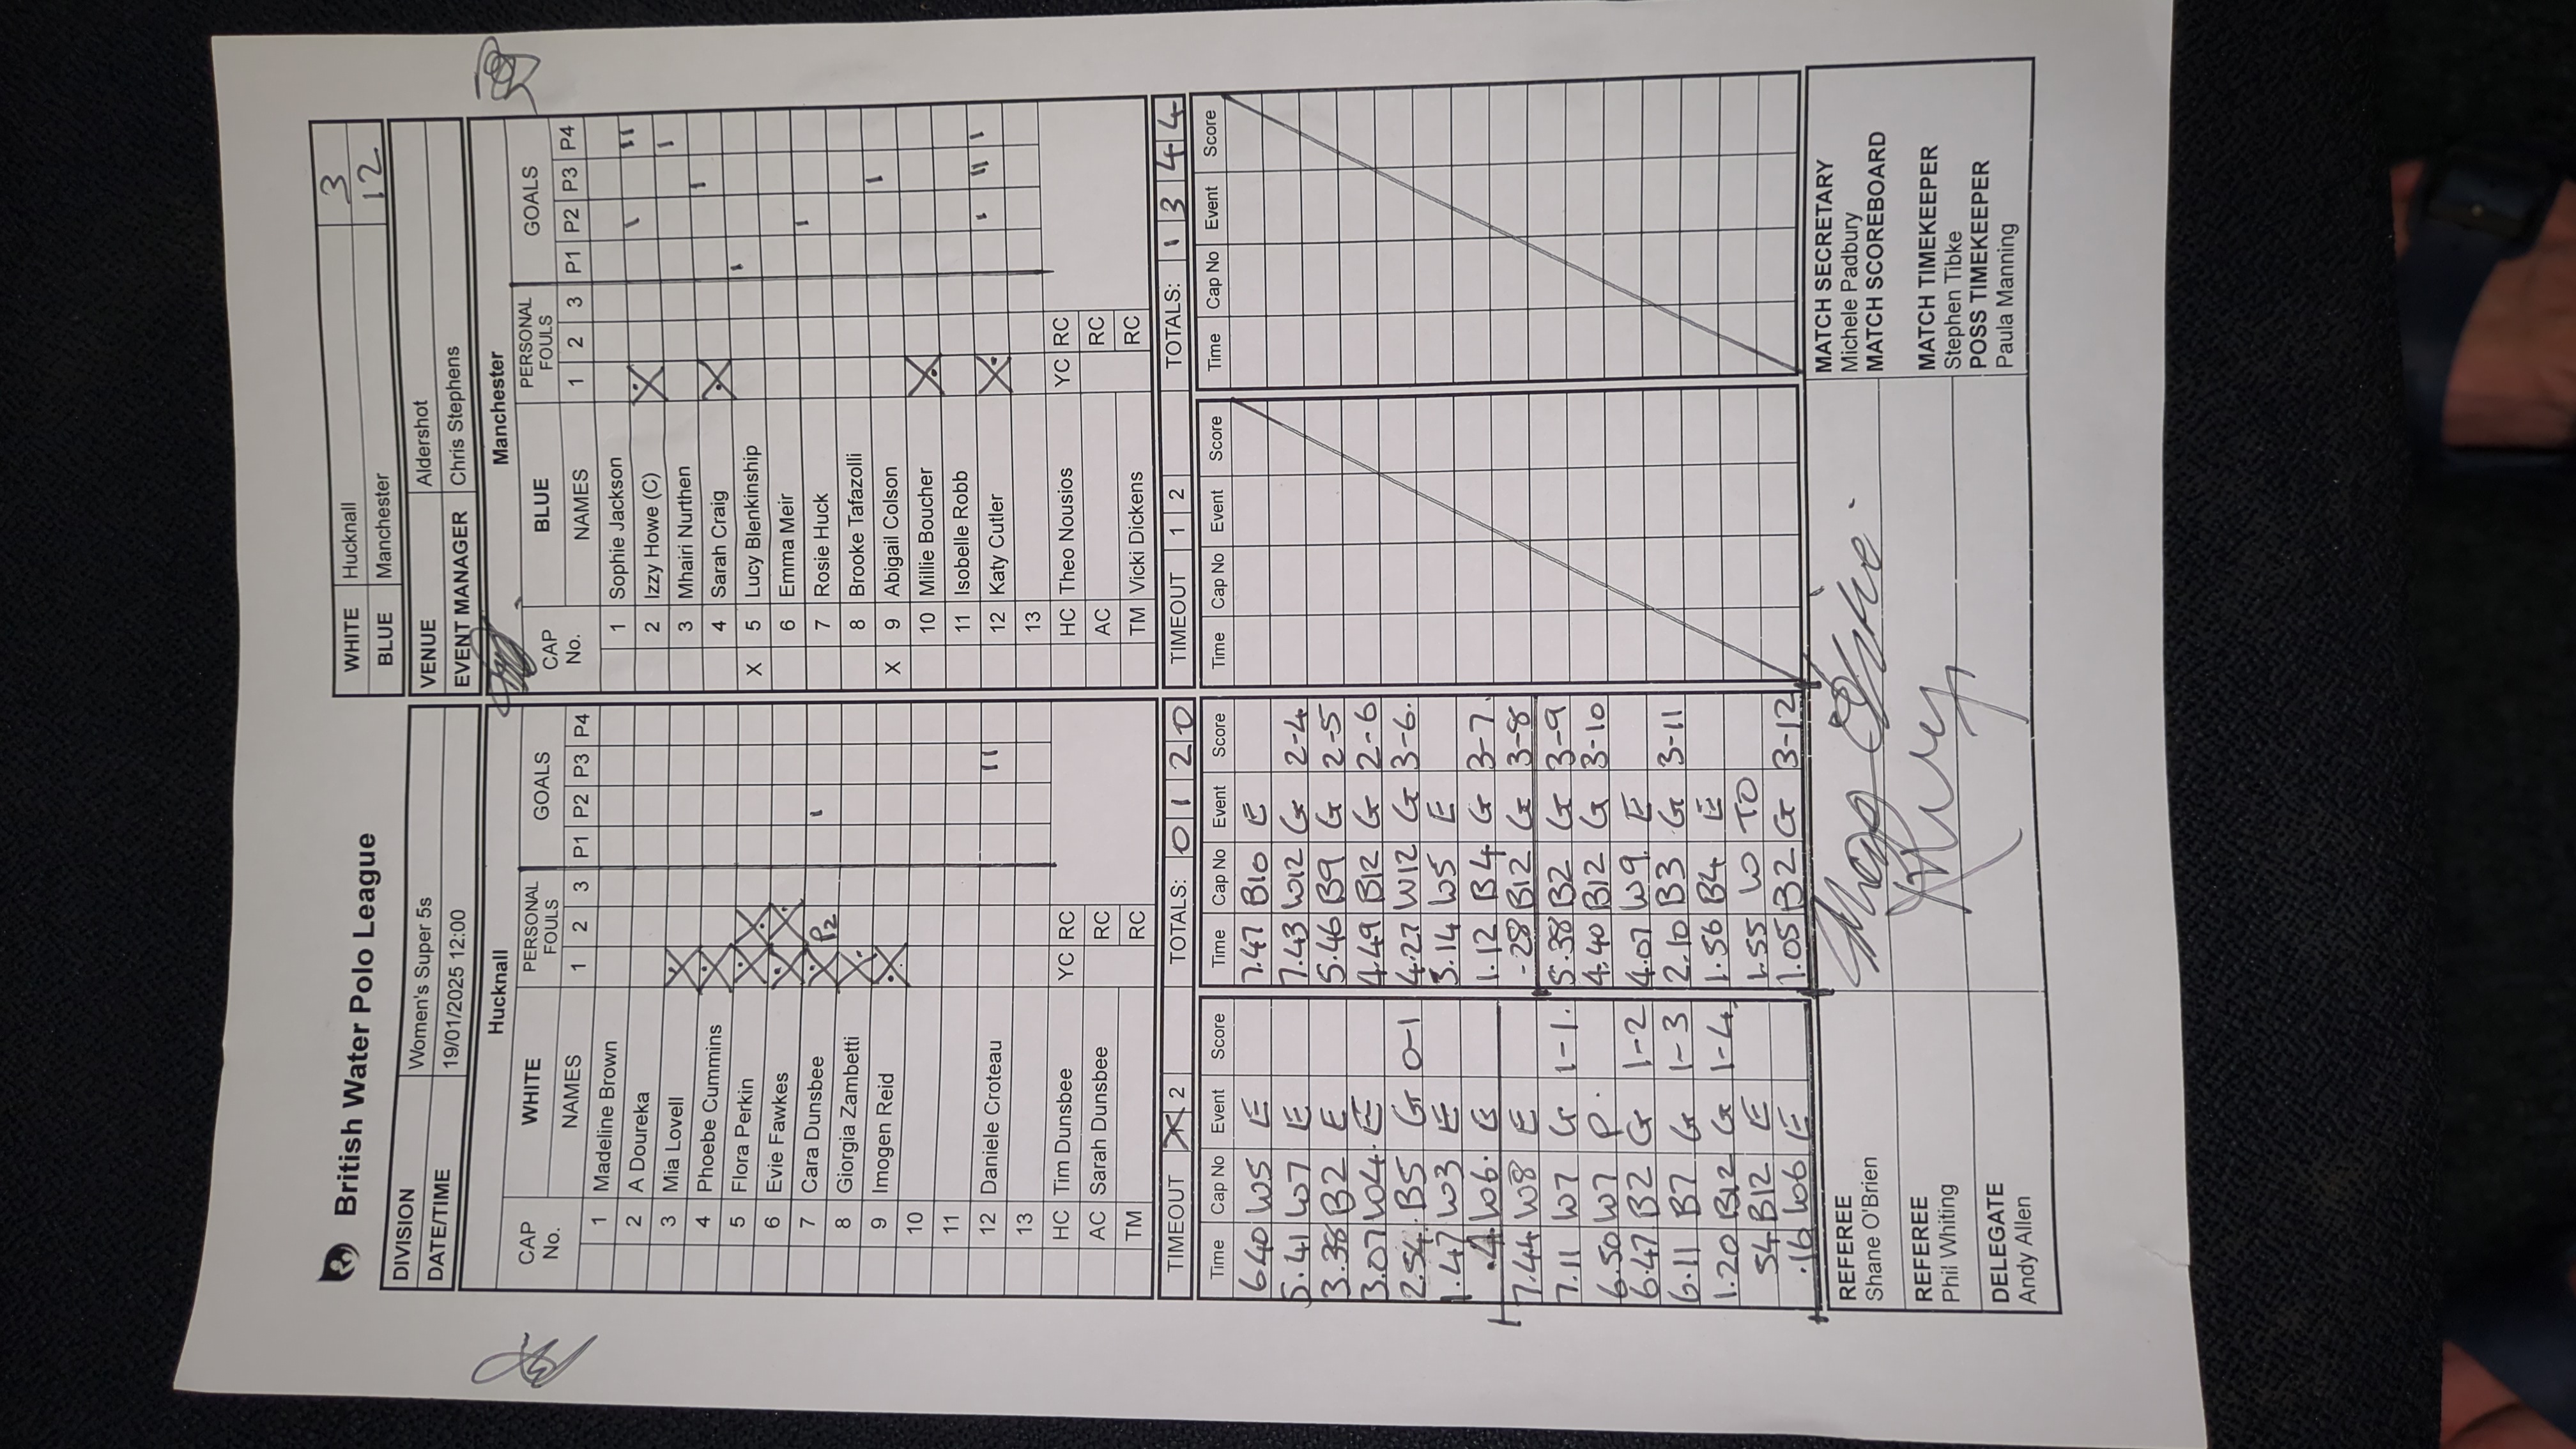 British Water Polo League
WHITE Hucknall 3
BLUE Manchester 12
DIVISION Women's Super 5s
DATE/TIME 19/01/2025 12:00
VENUE Aldershot
EVENT MANAGER Chris Stephens
Hucknall
CAP No. WHITE NAMES PERSONAL FOULS 1 2 3 GOALS P1 P2 P3 P4
1 Madeline Brown
2 A Doureka
3 Mia Lovell
4 Phoebe Cummins
5 Flora Perkin
6 Evie Fawkes
7 Cara Dunsbee P2 I
8 Giorgia Zambetti
9 Imogen Reid
10
11
12 Daniele Croteau II
13
HC Tim Dunsbee YC RC
AC Sarah Dunsbee RC
TM RC
TIMEOUT X 2 TOTALS: 0 1 2 0
Manchester
CAP No. BLUE NAMES PERSONAL FOULS 1 2 3 GOALS P1 P2 P3 P4
1 Sophie Jackson
2 Izzy Howe (C) I II
3 Mhairi Nurthen I
4 Sarah Craig I
X 5 Lucy Blenkinship I
6 Emma Meir
7 Rosie Huck I
8 Brooke Tafazolli
X 9 Abigail Colson I
10 Millie Boucher
11 Isobelle Robb
12 Katy Cutler I II I
13
HC Theo Nousios YC RC
AC RC
TM Vicki Dickens RC
TIMEOUT 1 2 TOTALS: 1 3 4 4
Time Cap No Event Score
6.40 W5 E
5.41 W7 E
3.38 B2 E
3.07 W4 E
2.54 B5 G 0-1
1.47 W3 E
W6 E
7.44 W8 E
7.11 W7 G 1-1
6.50 W7 P
6.47 B2 G 1-2
6.11 B7 G 1-3
1.20 B12 G 1-4
54 B12 E
.16 W6 E
Time Cap No Event Score
7.47 B10 E
7.43 W12 G 2-4
5.46 B9 G 2-5
4.49 B12 G 2-6
4.27 W12 G 3-6
3.14 W5 E
1.12 B4 G 3-7
.28 B12 G 3-8
5.38 B2 G 3-9
4.40 B12 G 3-10
4.07 W9 E
2.10 B3 G 3-11
1.56 B4 E
1.55 W TO
1.05 B2 G 3-12
Time Cap No Event Score
Time Cap No Event Score
REFEREE
Shane O'Brien
REFEREE
Phil Whiting
DELEGATE
Andy Allen
MATCH SECRETARY
Michele Padbury
MATCH SCOREBOARD
MATCH TIMEKEEPER
Stephen Tibke
POSS TIMEKEEPER
Paula Manning